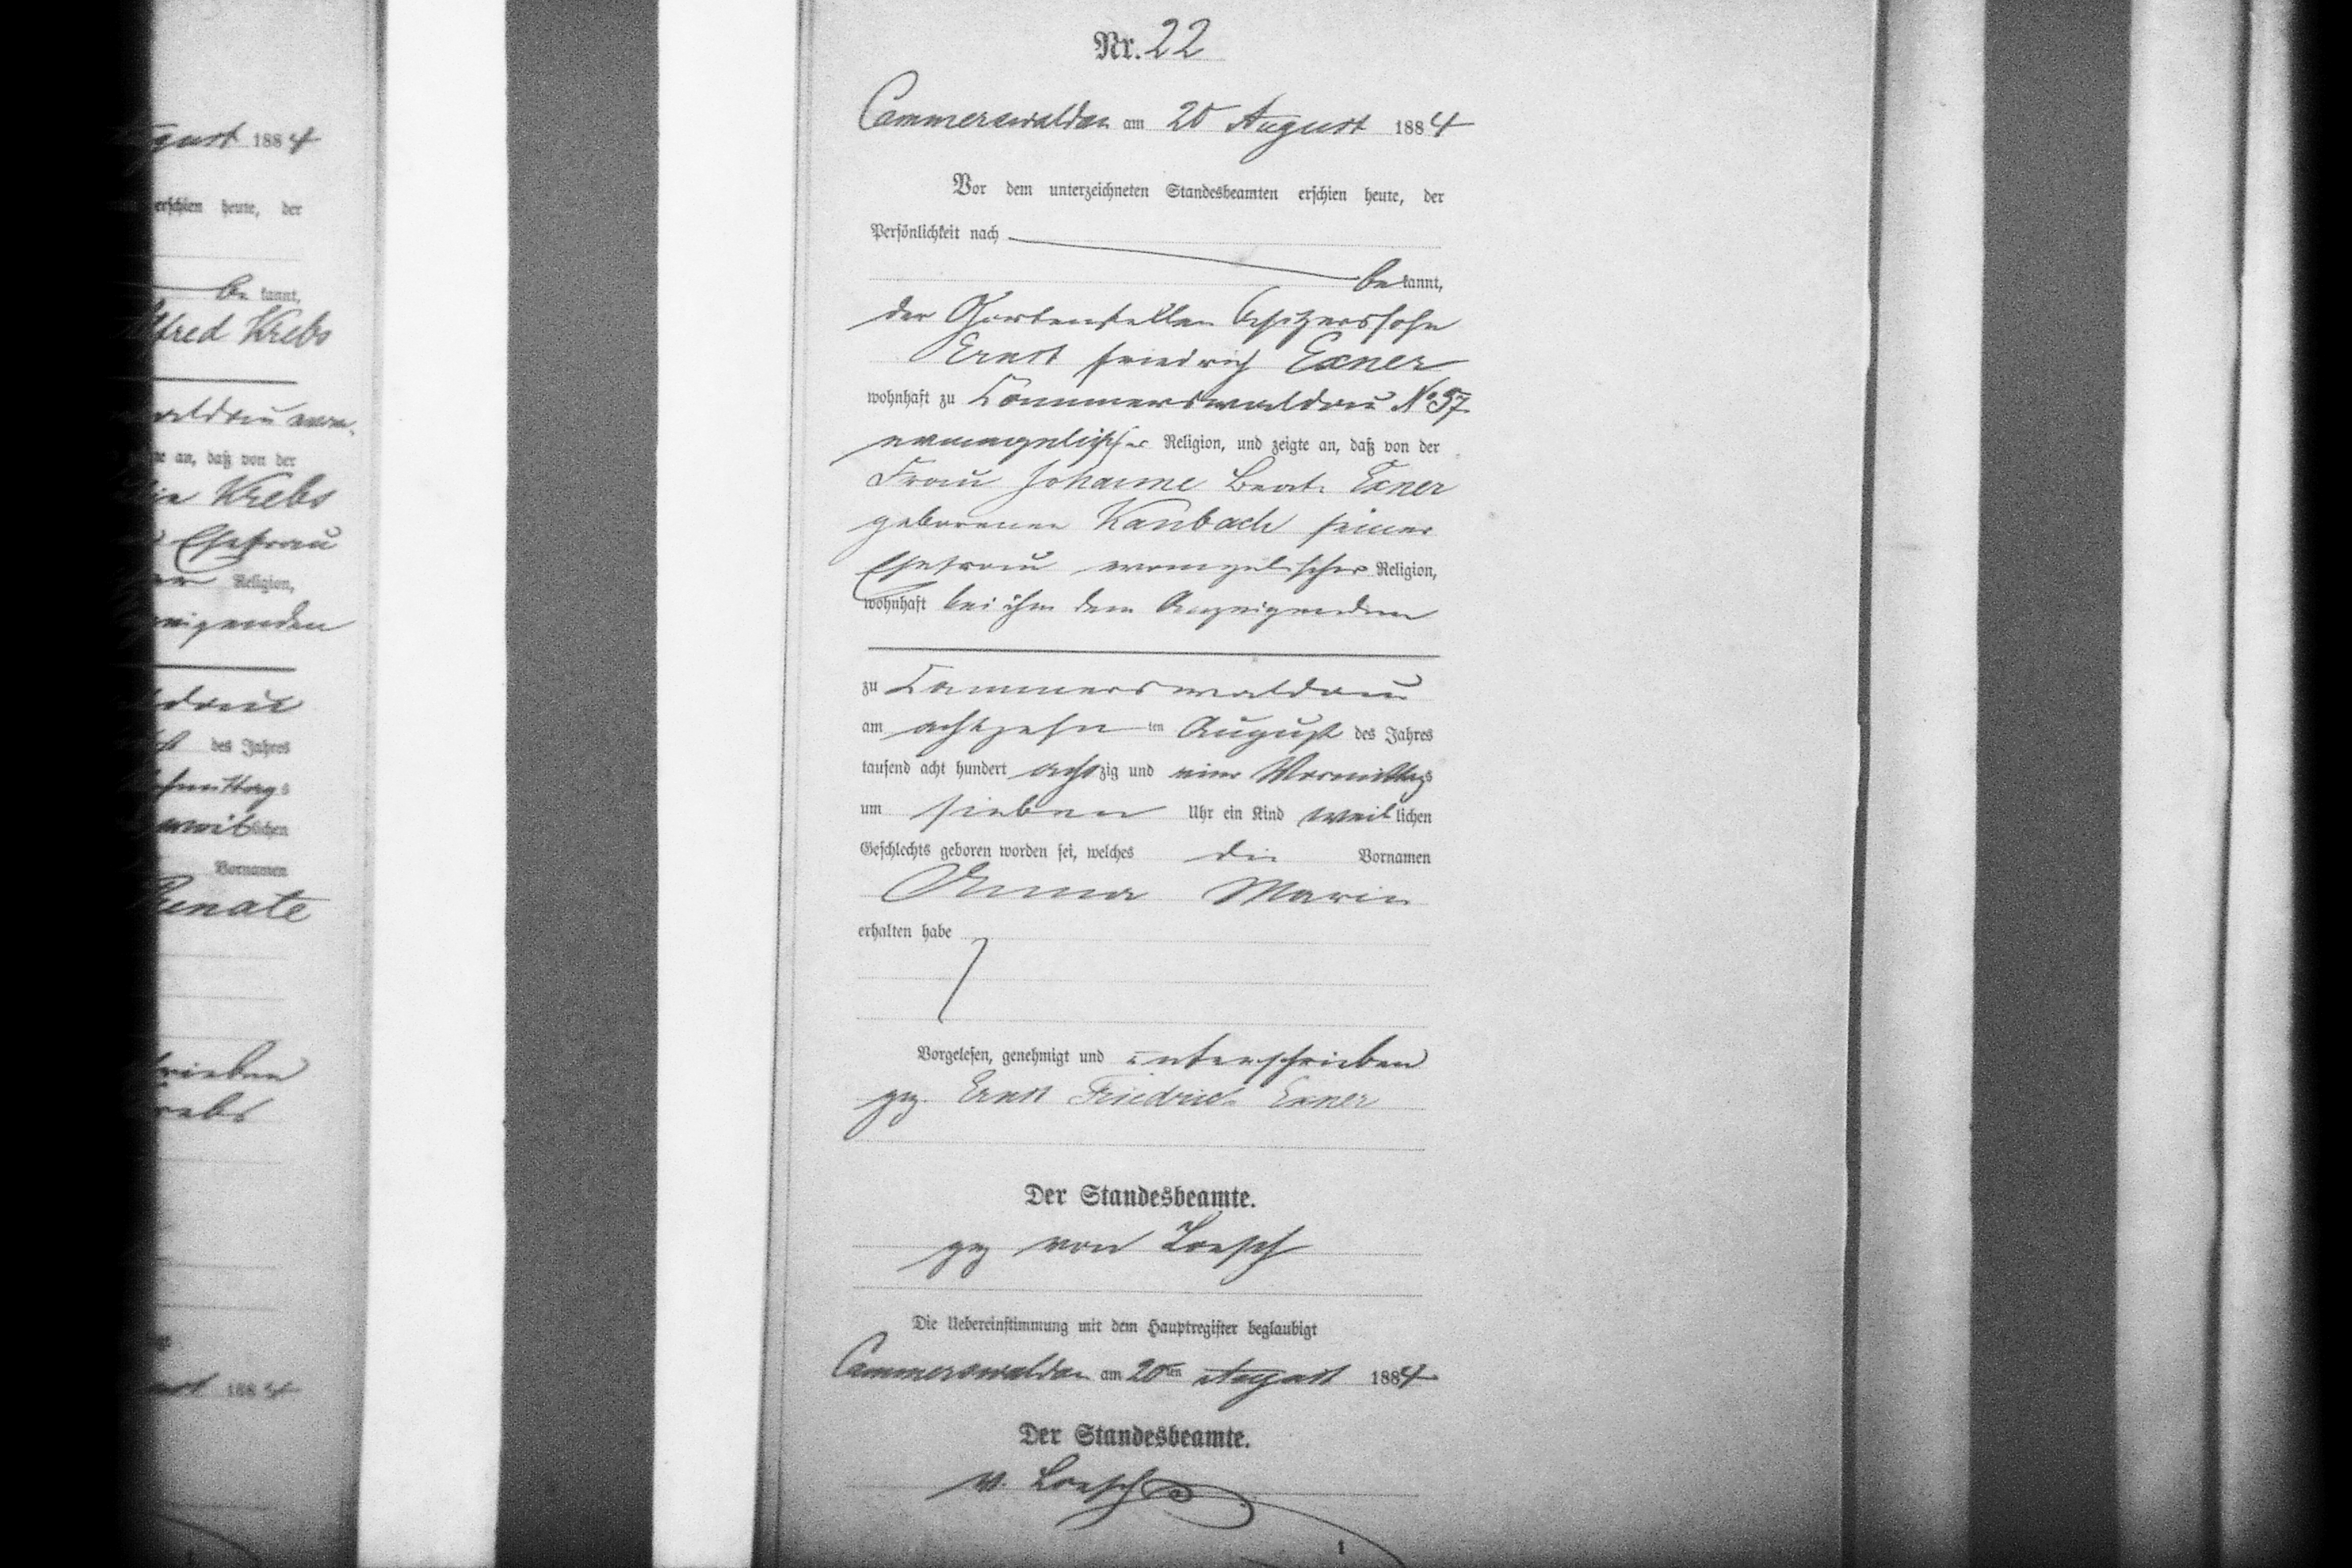 gust 1884
erschien heute, der
be kannt,
lfred Krebs
waldau
an, daß von der
Krebs
Ehefrau
Religion,
zeigenden
des Jahres
Vornamen
Renate
rieben
rebs
1884
Nr. 22
Cammerswaldau am 20 August 1884
Vor dem unterzeichneten Standesbeamten erschien heute, der
Persönlichkeit nach
be kannt,
der Gartenstellen Besitzerssohn
Ernst Friedrich Exner
wohnhaft zu Cammerswaldau No 57
evangelischer Religion, und zeigte an, daß von der
Frau Johanne Beate Exner
geborenen Kanbach seiner
Ehefrau evangelischer Religion,
wohnhaft bei ihm dem Anzeigenden
zu Cammerswaldau
am achtzehn ten August des Jahres
tausend acht hundert achtzig und vier Vormittags
um sieben Uhr ein Kind weiblichen
Geschlechts geboren worden sei, welches die Vornamen
Anna Marie
erhalten habe
Vorgelesen, genehmigt und unterschrieben
gez. Ernst Friedrich Exner
Der Standesbeamte.
gez von Loesch
Die Uebereinstimmung mit dem Hauptregister beglaubigt
Cammerswaldau am 20ten August 1884
Der Standesbeamte.
v. Loesch